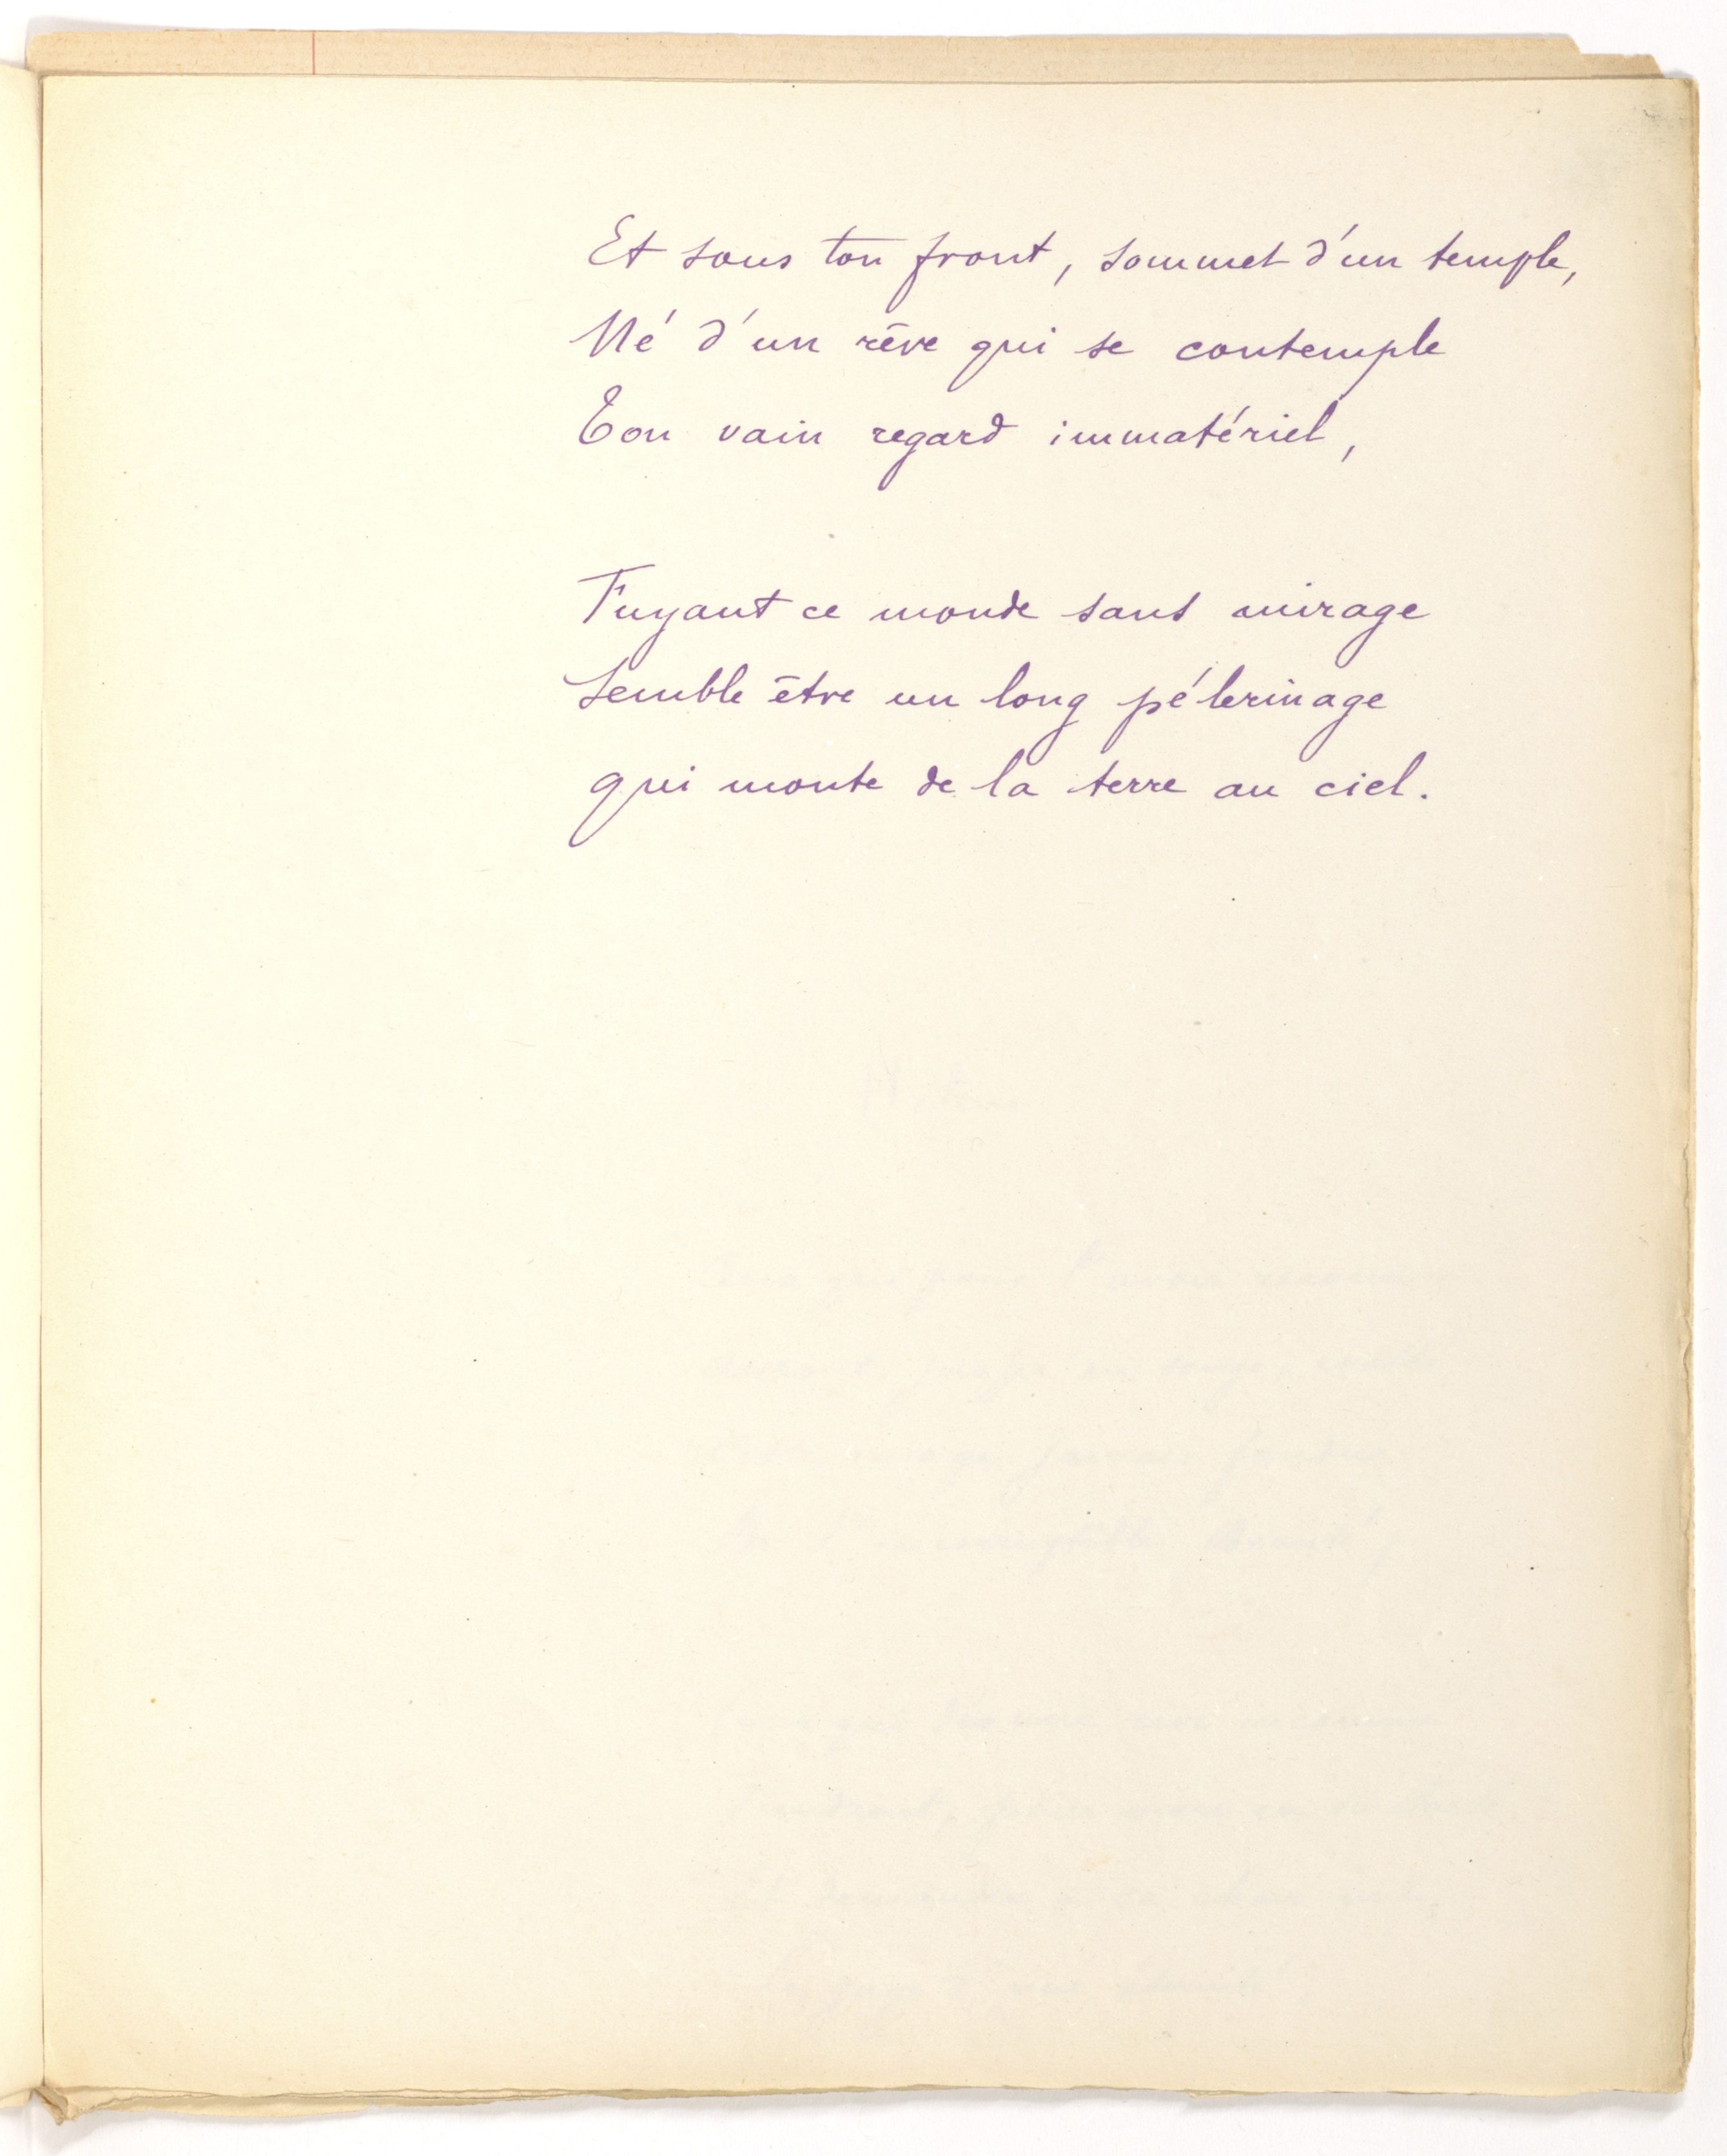 Et sous ton front, sommet d'un temple,
Né d'un rêve qui se contemple
Ton vain regard immatériel,
Fuyant ce monde sans mirage
Semble être un long pélerinage
qui monte de la terre au ciel.